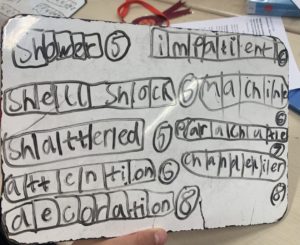 shower 5
impatient 6
shell shock 6
machine 6
shattered 5
parachute 7
attention 6
chandelier 8
decoration 8